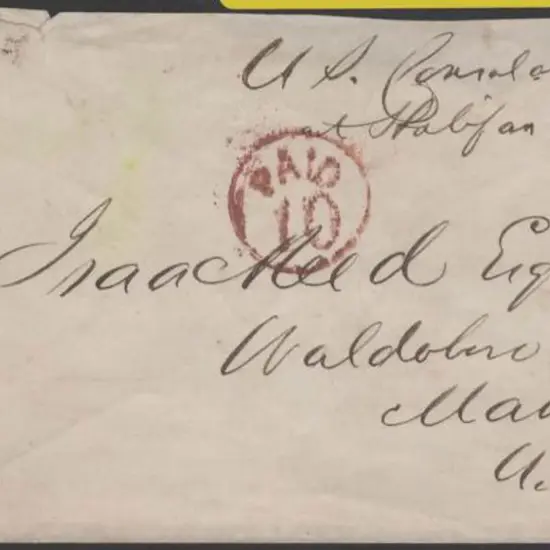 U S. Consul
at Halifax
PAID
10
Isaac Reed Esq
Waldoboro
Mai
U.